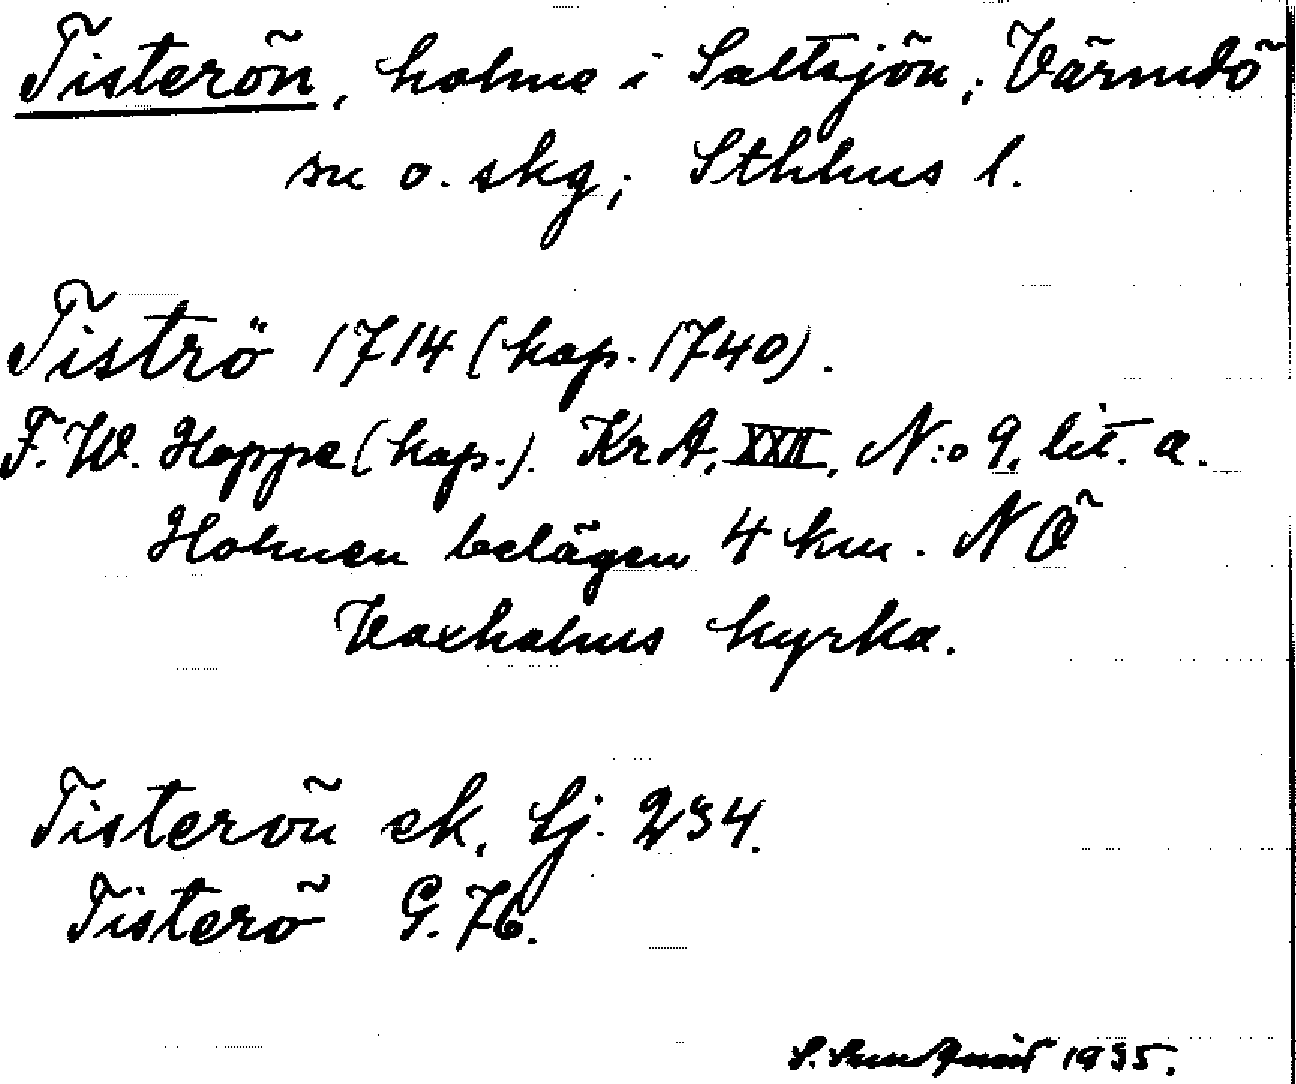 Tisterön, holme i Saltsjön; Värmdö
sn o. skg; Sthlms l.
Tiströ 1714 (kop. 1740).
F. W. Hoppe (kop.). KrA, XXII, N:o 9, lit. a.
Holmen belägen 4 km. NÖ
Vaxholms kyrka.
Tisterön ek. bj. 234.
Tisterö G. 76.
S. 1935.